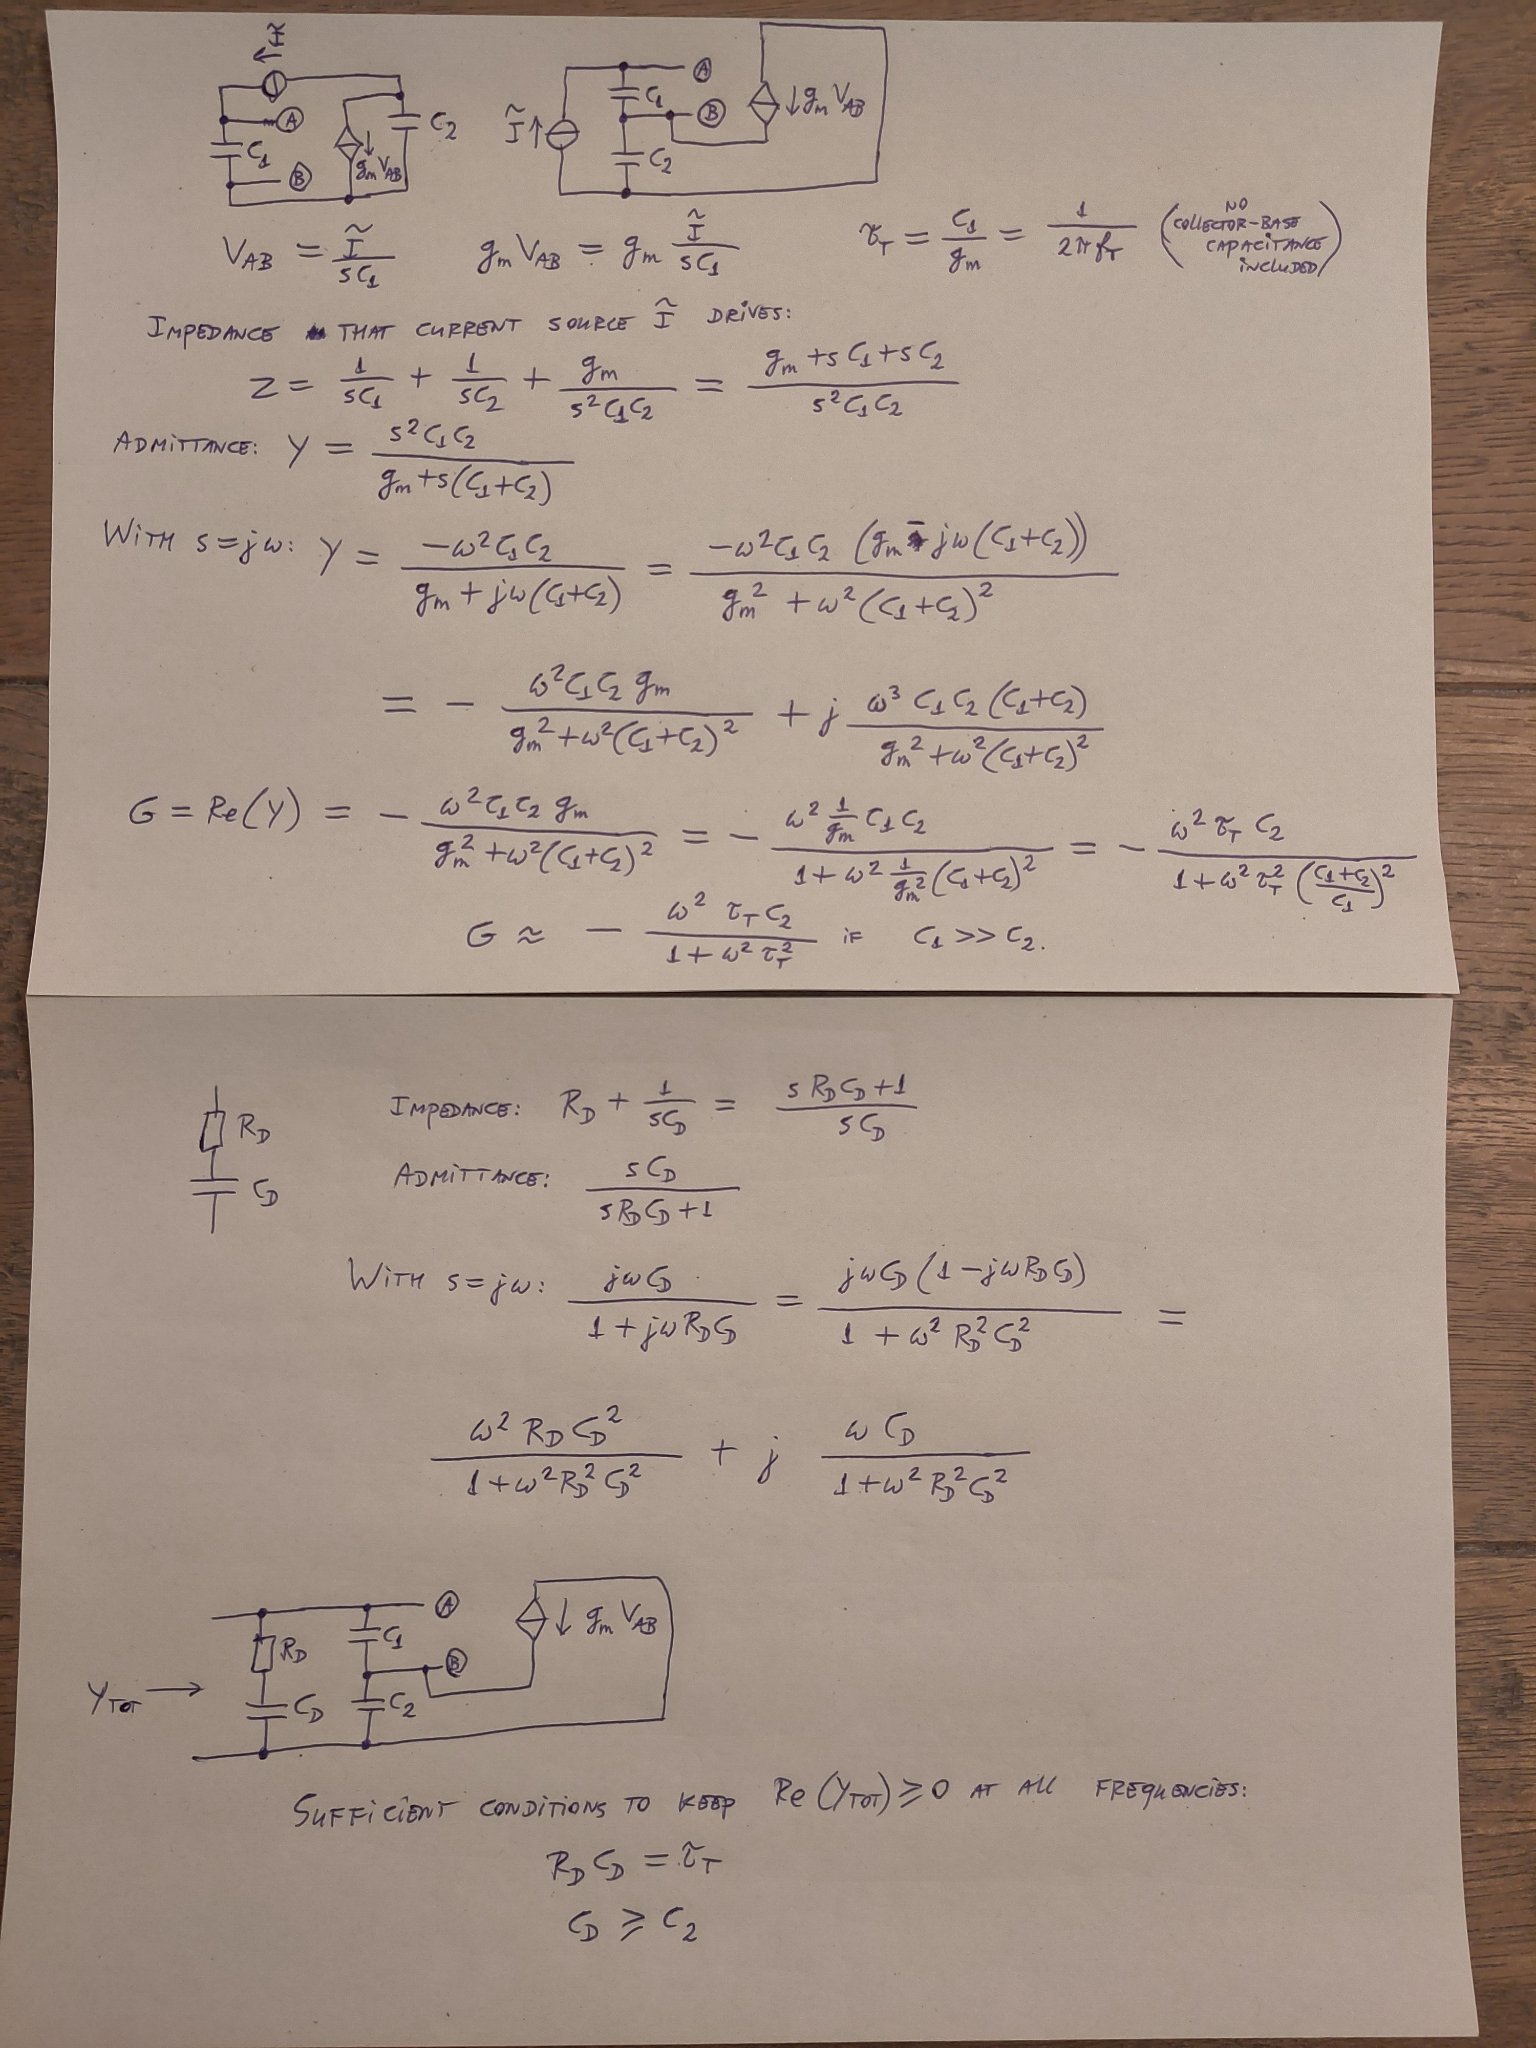 Ĩ
←
A
C1
B
gm VAB
C2
Ĩ↑
A
C1
B
C2
↓gm VAB
VAB = Ĩ/(sC1)   gm VAB = gm Ĩ/(sC1)   τT = C1/gm = 1/(2π fT) (NO COLLECTOR-BASE CAPACITANCE INCLUDED)
IMPEDANCE THAT CURRENT SOURCE Ĩ DRIVES:
Z = 1/(sC1) + 1/(sC2) + gm/(s²C1C2) = (gm + sC1 + sC2)/(s²C1C2)
ADMITTANCE: Y = s²C1C2/(gm + s(C1+C2))
WITH s=jω: Y = -ω²C1C2/(gm + jω(C1+C2)) = -ω²C1C2 (gm - jω(C1+C2))/(gm² + ω²(C1+C2)²)
= - ω²C1C2 gm/(gm² + ω²(C1+C2)²) + j ω³ C1C2 (C1+C2)/(gm² + ω²(C1+C2)²)
G = Re(Y) = - ω²C1C2 gm/(gm² + ω²(C1+C2)²) = - ω² (1/gm) C1C2/(1 + ω² (1/gm²) (C1+C2)²) = - ω² τT C2/(1 + ω² τT² ((C1+C2)/C1)²)
G ≈ - ω² τT C2/(1 + ω² τT²) IF C1 >> C2.
RD
CD
IMPEDANCE: RD + 1/(sCD) = (sRDCD+1)/(sCD)
ADMITTANCE: sCD/(sRDCD+1)
WITH s=jω: jωCD/(1 + jωRDCD) = jωCD(1-jωRDCD)/(1 + ω²RD²CD²) =
ω²RDCD²/(1+ω²RD²CD²) + j ωCD/(1+ω²RD²CD²)
YTOT →
RD
CD
A
C1
B
C2
↓ gm VAB
SUFFICIENT CONDITIONS TO KEEP Re(YTOT) ≥ 0 AT ALL FREQUENCIES:
RD CD = τT
CD ≥ C2